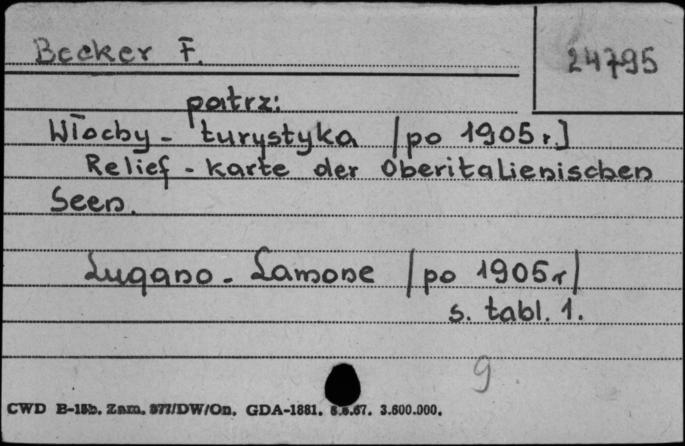 Becker F.
24795
patrz:
Włochy - turystyka [po 1905 r.]
Relief - karte der Oberitalienischen
Seen.
Lugano - Lamone [po 1905 r]
s. tabl. 1.
9
CWD B-15b. Zam. 577/DW/On. GDA-1881. 5.5.67. 3.600.000.